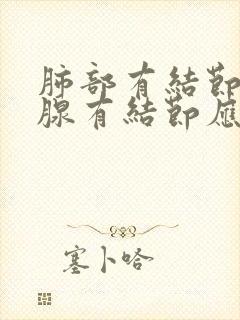 肺部有結節
腺有結節應
塞卜哈